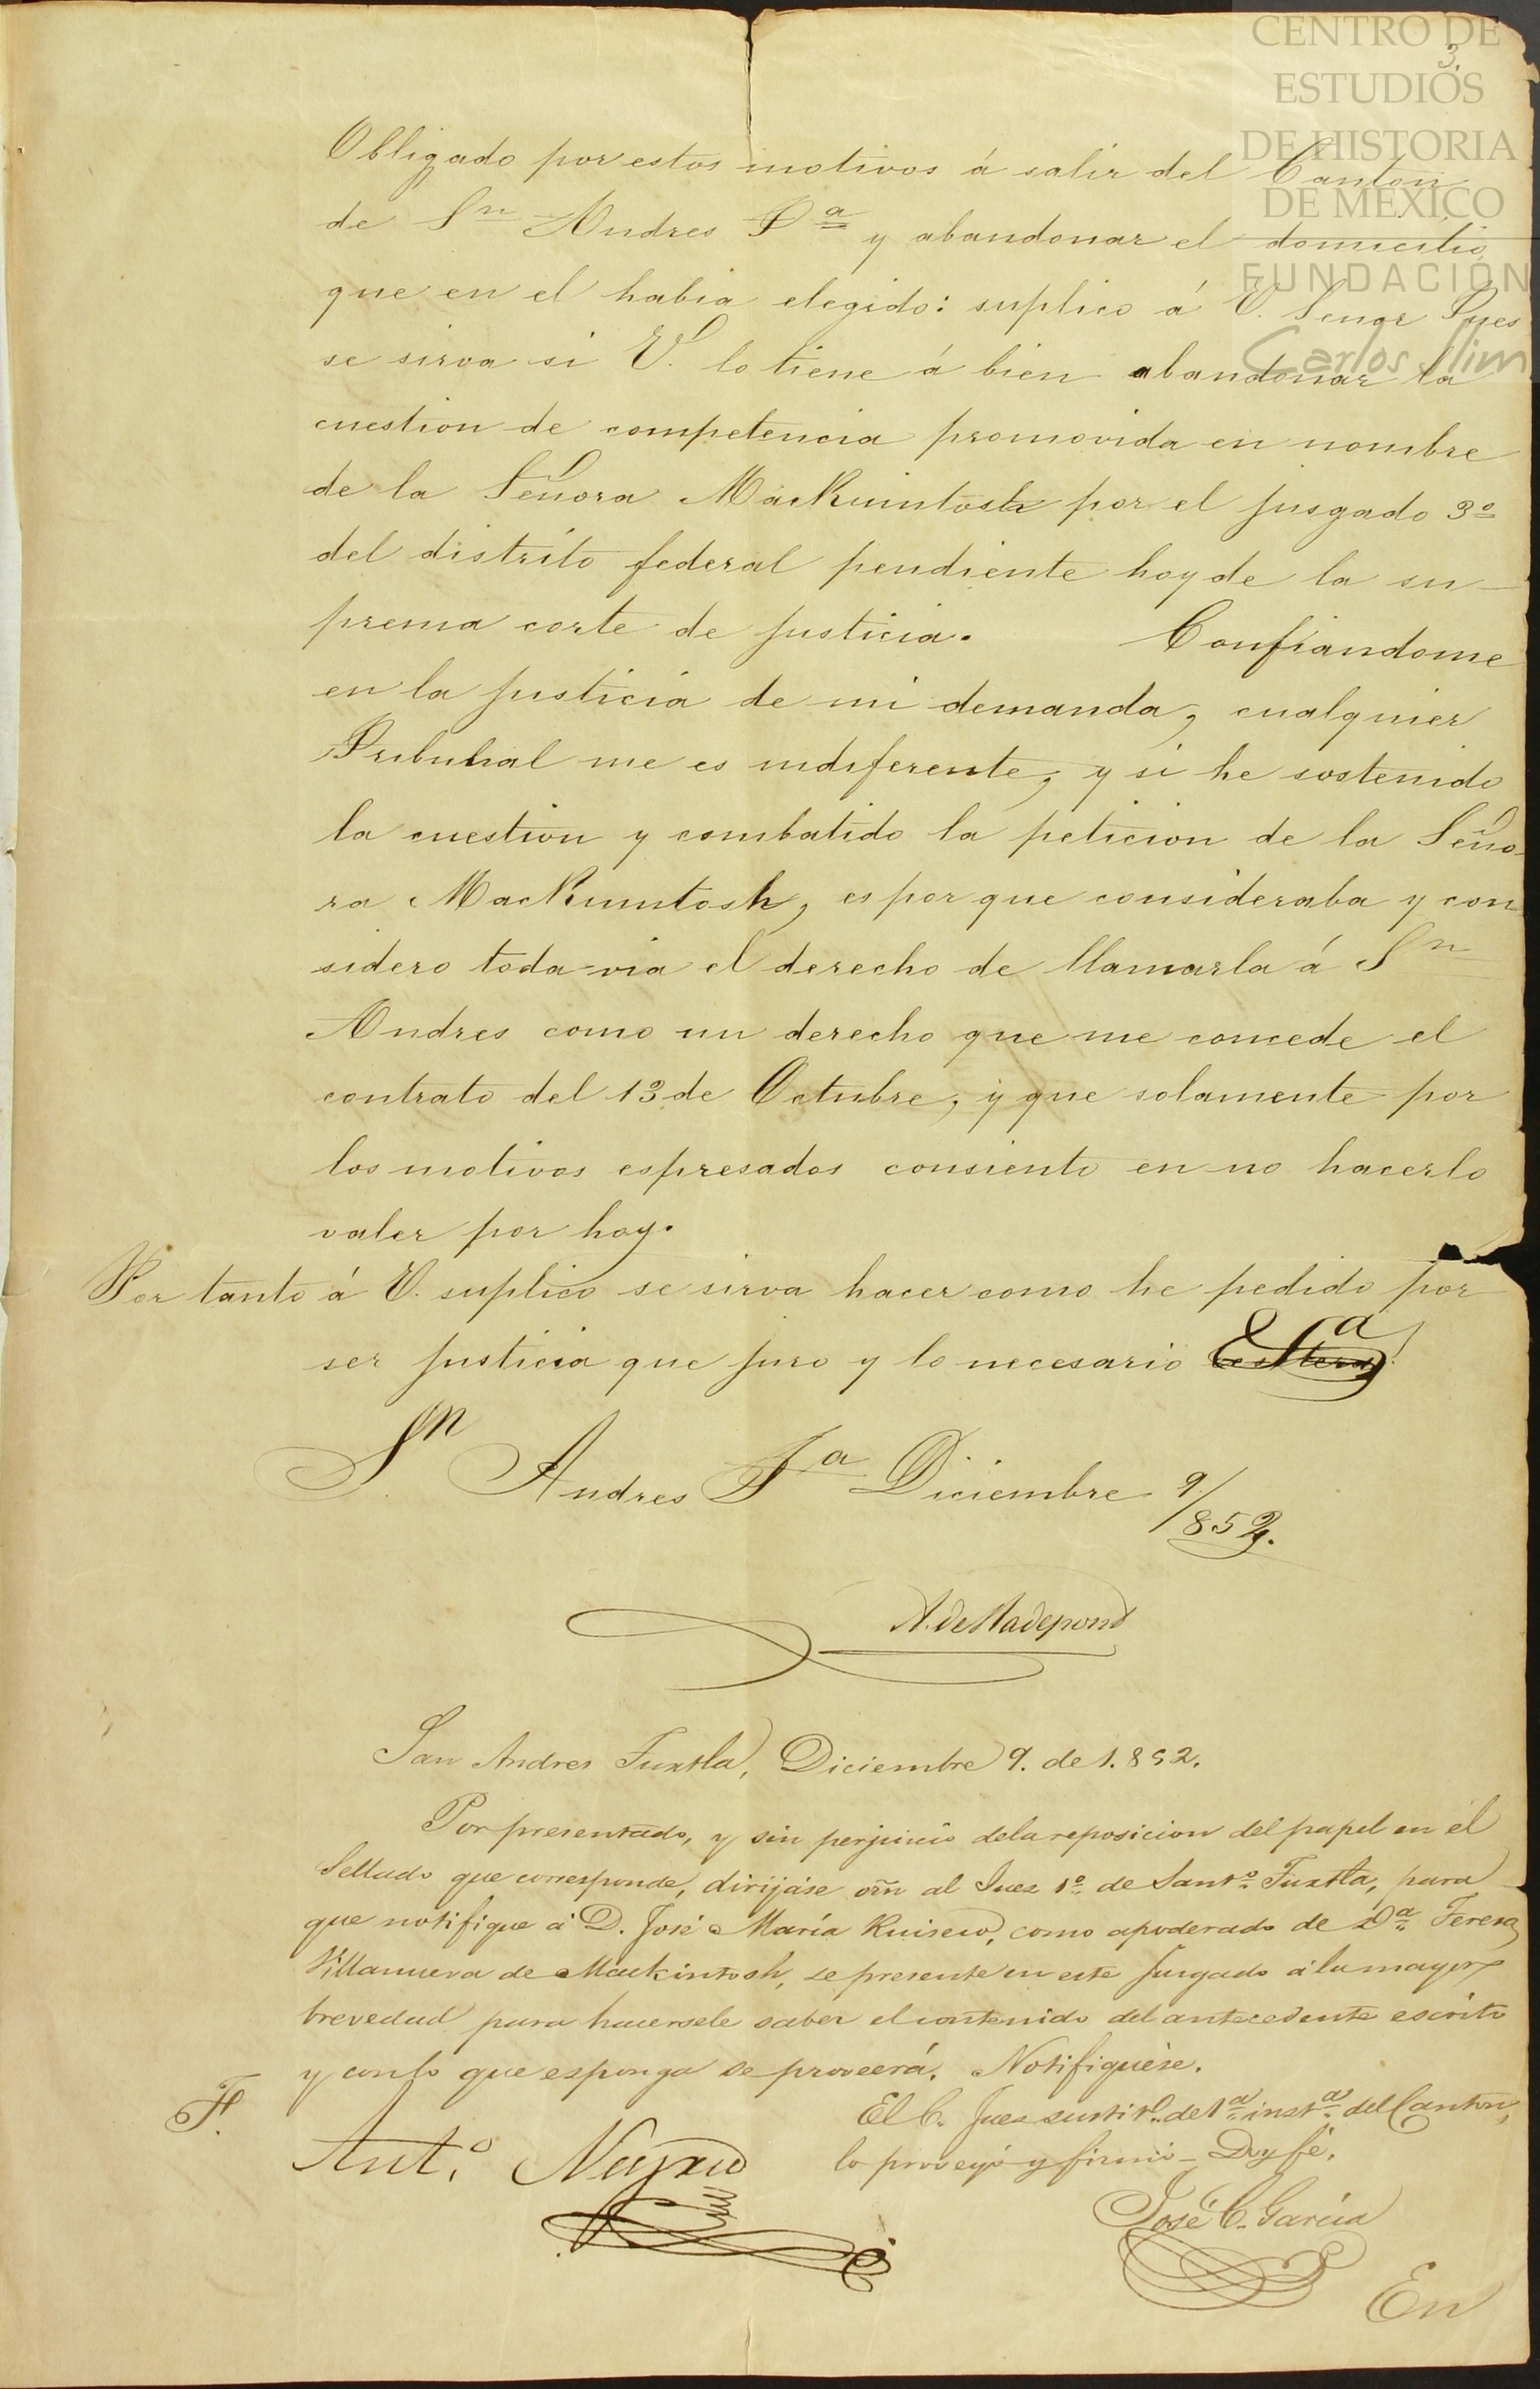 CENTRO DE
ESTUDIOS
DE HISTORIA
DE MÉXICO
FUNDACIÓN
Carlos Slim
3.
Obligado por estos motivos á salir del Canton
de Sn Andres Ta y abandonar el domicilio
que en el habia elegido: suplico á V. Señor Jues
se sirva si V. lo tiene á bien abandonar la
cuestion de competencia promovida en nombre
de la Señora MacKuintosh por el jusgado 3o
del distrito federal pendiente hoy de la su-
prema corte de justicia. Confiandome
en la justicia de mi demanda, cualquier
Tribunal me es indiferente, y si he sostenido
la cuestion y combatido la peticion de la Seño-
ra MacKuintosh, es por que consideraba y con
sidero toda-via el derecho de llamarla á Sn
Andres como un derecho que me concede el
contrato del 13 de Octubre, y que solamente por
los motivos espresados consiento en no hacerlo
valer por hoy.
Por tanto á V. suplico se sirva hacer como he pedido por
ser justicia que juro y lo necesario
Sn Andres Ta Diciembre 9/852.
San Andres Tuxtla, Diciembre 9. de 1.852.
Por presentado, y sin perjuicio de la reposicion del papel en el
Sellado que corresponde, dirijáse orn al Juez 1o de Santo Tuxtla, para
que notifique á D. José María Ruiseco, como apoderado de Da Teresa
Villanueva de Mackintosh, se presente en este Jusgado á la mayor
brevedad para hacersele saber el contenido del antecedente escrito
y con lo que esponga se proveerá. Notifiquése.
El C. Juez sustito de 1a insta del Canton,
lo proveyó y firmó - Doy fé.
Anto
José C. García
En